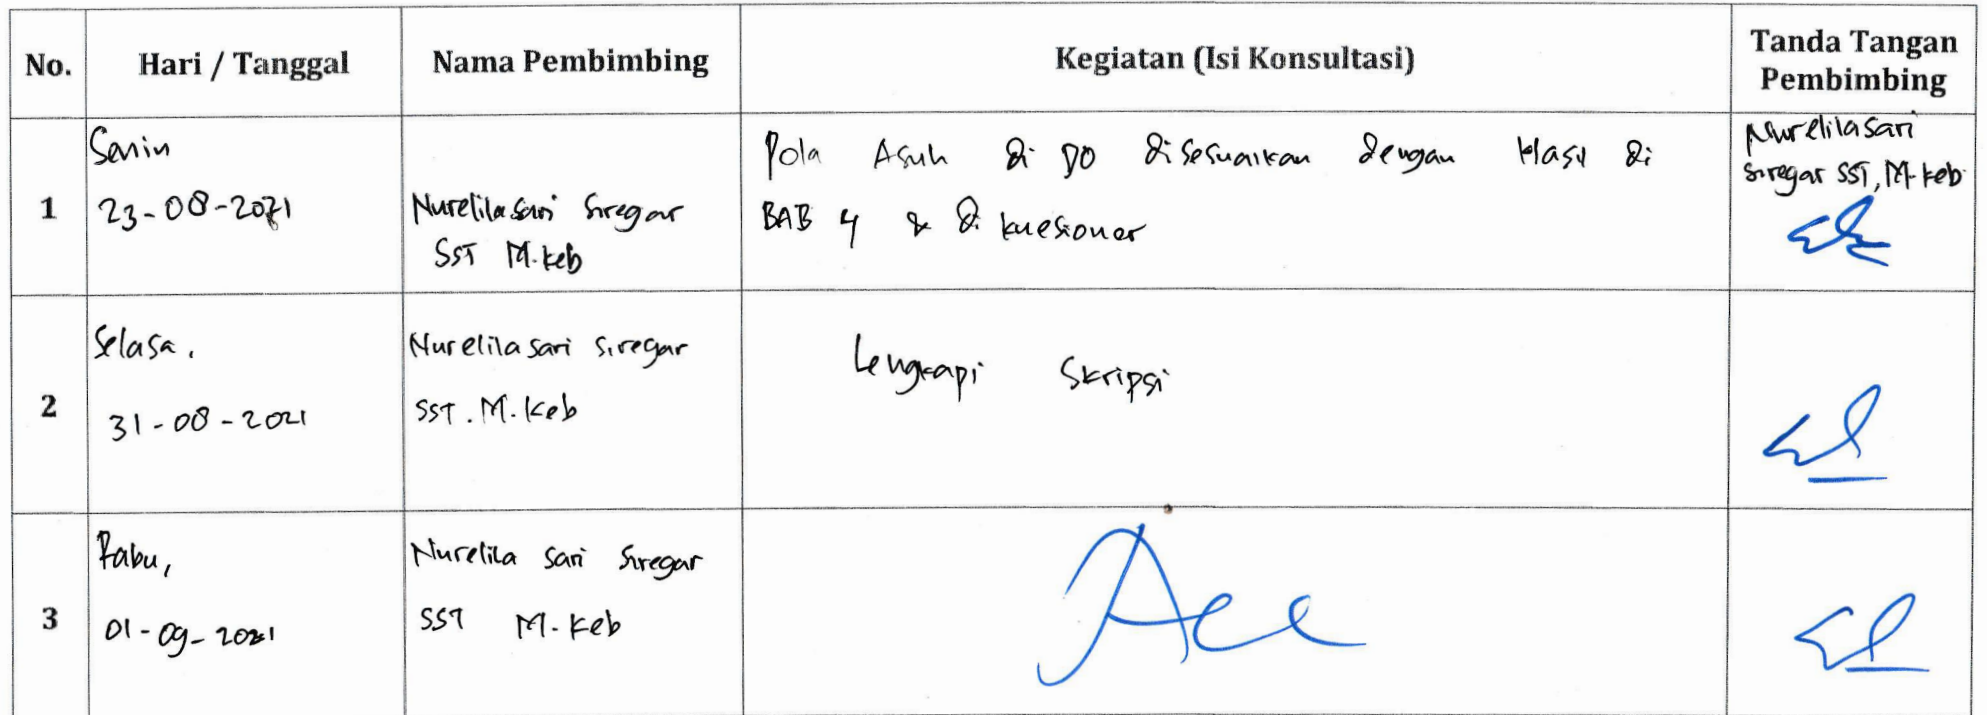 No.
Hari / Tanggal
Nama Pembimbing
Kegiatan (Isi Konsultasi)
Tanda Tangan
Pembimbing
1
Senin
23-08-2021
Nurelilasari Siregar
SST M.keb
Pola Asuh di DO disesuaikan dengan Hasil di
BAB 4 & di kuesioner
Nurelilasari
Siregar SST, M.keb
2
Selasa,
31-08-2021
Nurelilasari Siregar
SST. M.Keb
Lengkapi Skripsi
3
Rabu,
01-09-2021
Nurelila sari Siregar
SST M.Keb
Acc